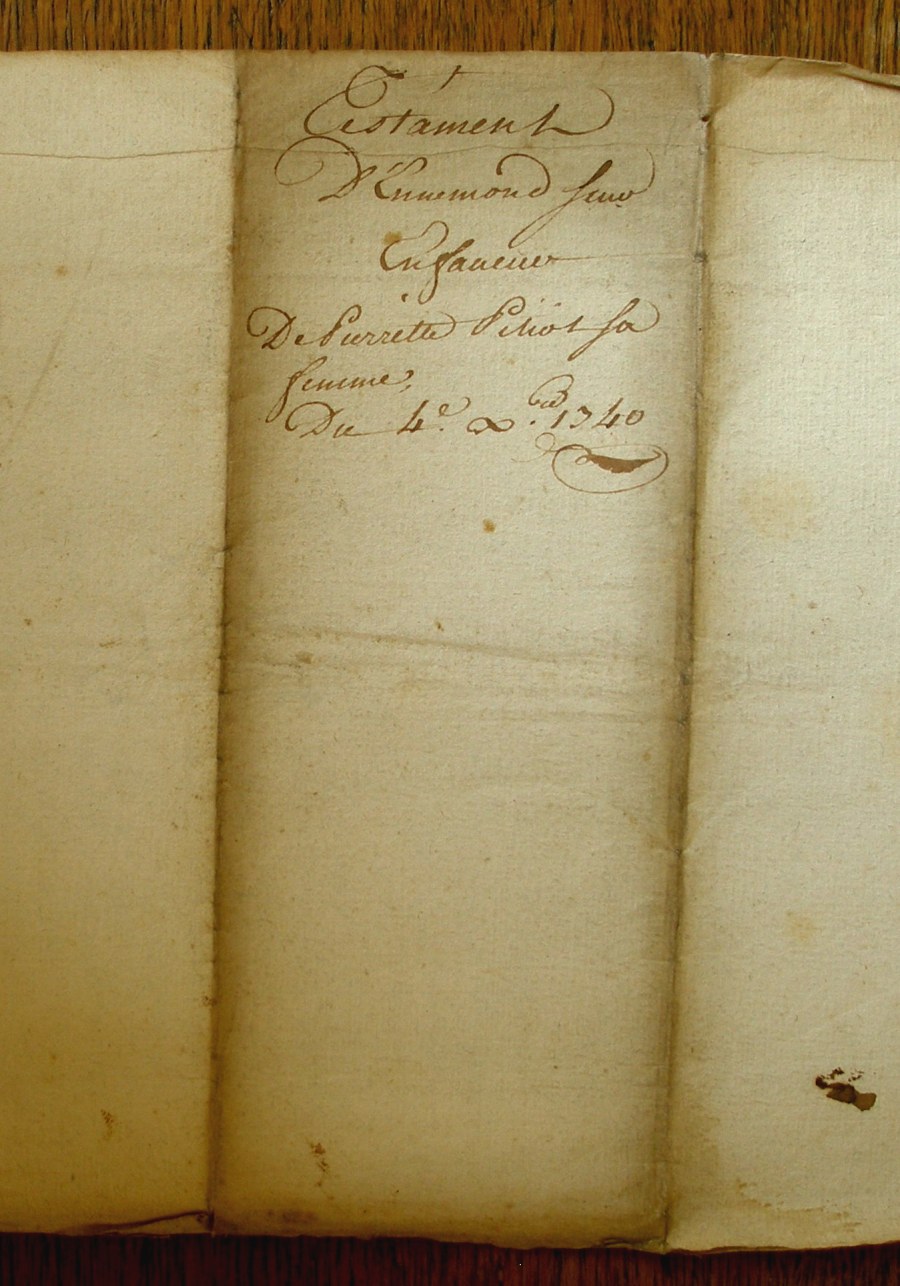 Testament
D'Ennemond
En faveur
De Pierrette Pitiot sa
femme,
Du 4e. xbre 1740